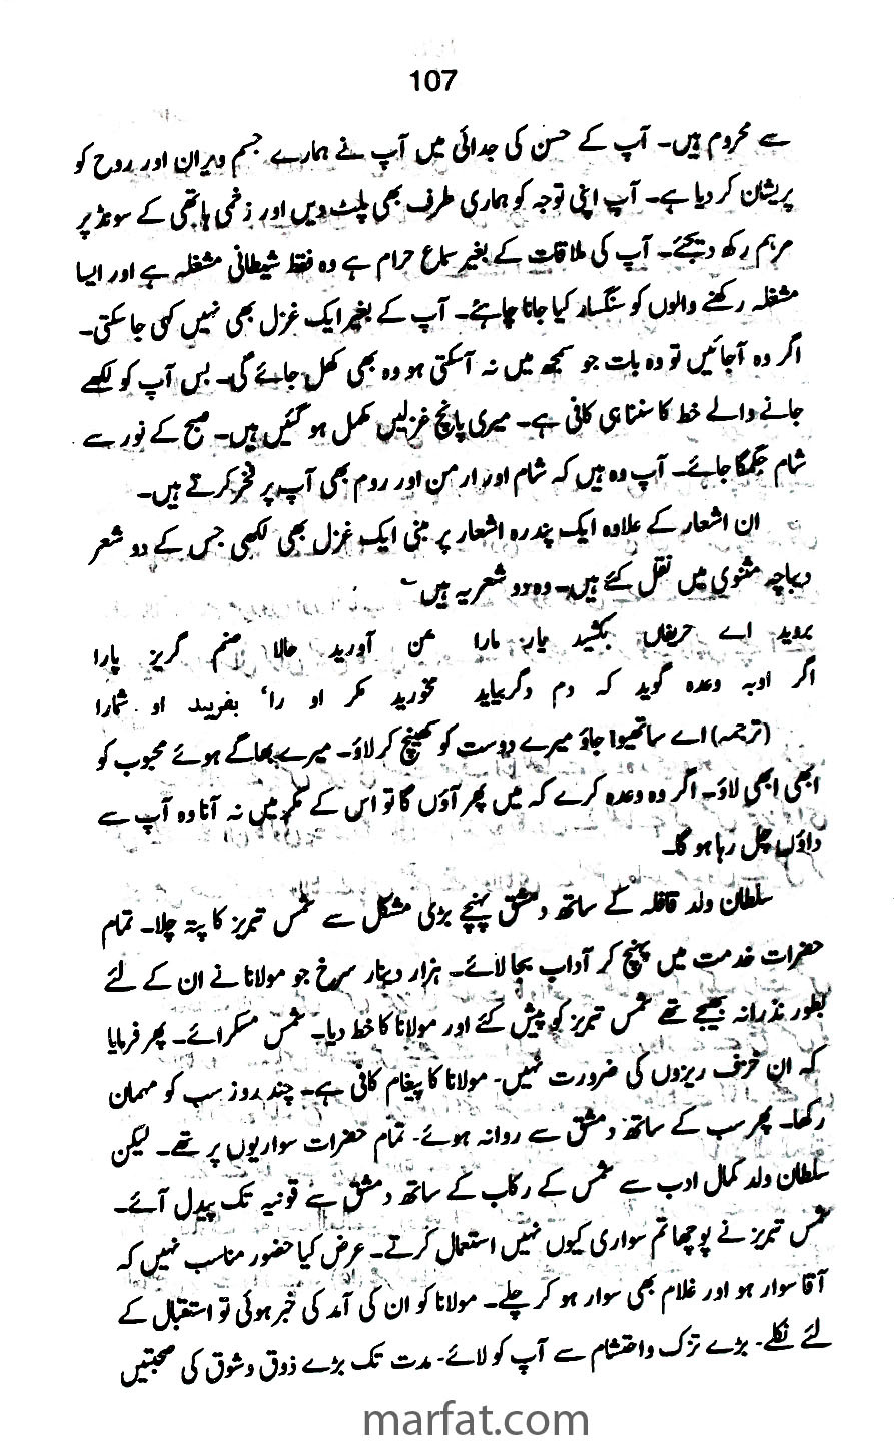 107
سے محروم ہیں۔ آپ کے حسن کی جدائی میں آپ نے ہمارے جسم ویران اور روح کو
پریشان کر دیا ہے۔ آپ اپنی توجہ کو ہماری طرف بھی پلٹ دیں اور زخمی ہاتھی کے سونڈ پر
مرہم رکھ دیجئے۔ آپ کی ملاقات کے بغیر سماع حرام ہے وہ فقط شیطانی مشغلہ ہے اور ایسا
مشغلہ رکھنے والوں کو سنگسار کیا جانا چاہئے۔ آپ کے بغیر ایک غزل بھی نہیں کہی جا سکتی۔
اگر وہ آجائیں تو وہ بات جو سمجھ میں نہ آ سکتی ہو وہ بھی کھل جائے گی۔ بس آپ کو لکھے
جانے والے خط کا سننا ہی کافی ہے۔ میری پانچ غزلیں مکمل ہو گئیں ہیں۔ صبح کے نور سے
شام جگمگا جائے۔ آپ وہ ہیں کہ شام اور ارمن اور روم بھی آپ پر فخر کرتے ہیں۔
ان اشعار کے علاوہ ایک پندرہ اشعار پر مبنی ایک غزل بھی لکھی جس کے دو شعر
دیباچہ مثنوی میں نقل کئے ہیں۔ وہ دو شعر یہ ہیں ؂
بروید اے حریفاں بکشید یار مارا بمن آورید حالا صنم گریز پارا
اگر اوبہ وعدہ گوید کہ دم دگر بیاید مخورید مکر او را، بفریبد او شمارا
(ترجمہ) اے ساتھیوا جاؤ میرے دوست کو کھینچ کر لاؤ۔ میرے بھاگے ہوئے محبوب کو
ابھی ابھی لاؤ۔ اگر وہ وعدہ کرے کہ میں پھر آؤں گا تو اس کے مکر میں نہ آنا وہ آپ سے
داؤں چل رہا ہو گا۔
سلطان ولد قافلہ کے ساتھ دمشق پہنچے بڑی مشکل سے شمس تبریز کا پتہ چلا۔ تمام
حضرات خدمت میں پہنچ کر آداب بجا لائے۔ ہزار دینار سرخ جو مولانا نے ان کے لئے
بطور نذرانہ بھیجے تھے شمس تبریز کو پیش کئے اور مولانا کا خط دیا۔ شمس مسکرائے۔ پھر فرمایا
کہ ان خزف ریزوں کی ضرورت نہیں۔ مولانا کا پیغام کافی ہے۔ چند روز سب کو مہمان
رکھا۔ پھر سب کے ساتھ دمشق سے روانہ ہوئے۔ تمام حضرات سواریوں پر تھے۔ لیکن
سلطان ولد کمال ادب سے شمس کے رکاب کے ساتھ دمشق سے قونیہ تک پیدل آئے۔
شمس تبریز نے پوچھا تم سواری کیوں نہیں استعمال کرتے۔ عرض کیا حضور مناسب نہیں کہ
آقا سوار ہو اور غلام بھی سوار ہو کر چلے۔ مولانا کو ان کی آمد کی خبر ہوئی تو استقبال کے
لئے نکلے۔ بڑے تزک واحتشام سے آپ کو لائے۔ مدت تک بڑے ذوق و شوق کی صحبتیں
marfat.com